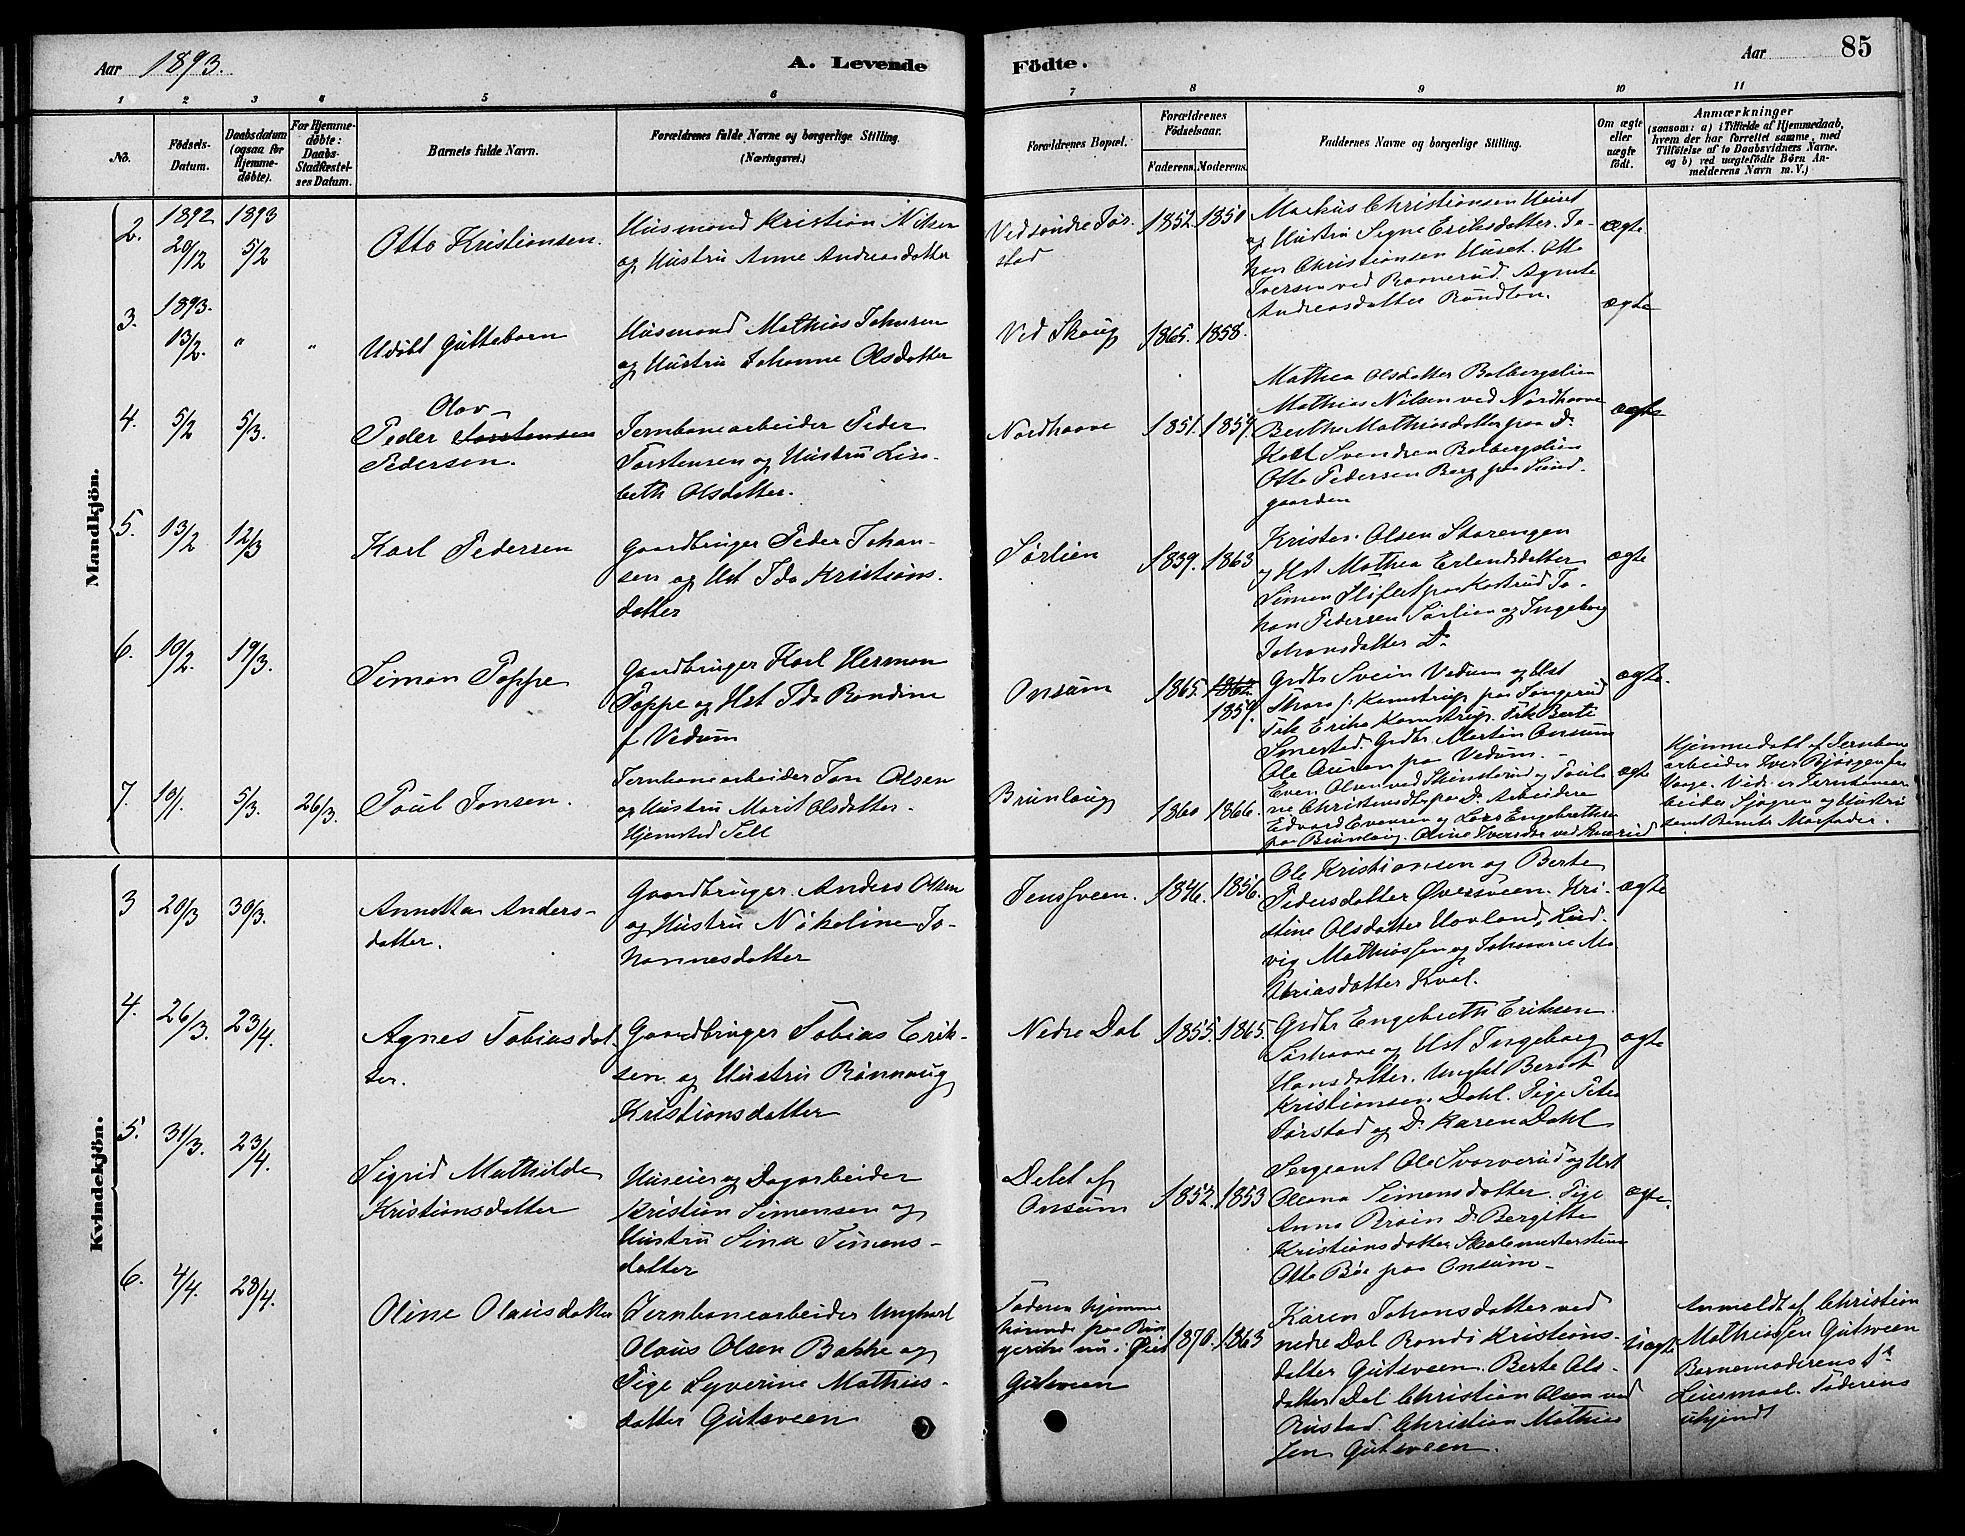 Aar 1893.
A. Levende
Födte.
Aar
85
1
2
3
4
5
6
7
8
9
10
11
No.
Födsels-
Datum.
Daabsdatum
(ogsaa for
Hjemme-
döbte).
For Hjemme-
döbte:
Daabs-
Stadfæstel-
ses Datum.
Barnets fulde Navn.
Forældrenes fulde Navne og borgerlige Stilling.
(Næringsvei.)
Forældrenes Bopæl.
Forældrenes
Födselsaar.
Faderens.
Moderens.
Faddernes Navne og borgerlige Stilling.
Om ægte
eller
uægte
födt.
Anmærkninger
(saasom: a) i Tilfælde af Hjemmedaab,
hvem der har forrettet samme, med
Tilföielse af to Daabsvidners Navne,
og b) ved uægtefödte Börn An-
melderens Navn m. V.)
Mandkjön.
2.
1892
20/12
1893
5/2
Otto Kristiansen.
Husmand Kristian Nilsen
og Hustru Anne Andreasdatter
Ved søndre Jør-
stad
1852.
1850
Markus Christiansen Huset
og Hustru Signe Eriksdatter. Jo-
han Christiansen Huset. Otto
Iversen ved Romerud. Agnete
Andreasdatter
ægte
3.
1893.
13/2.
"
"
Udøbt Guttebarn
Husmand Mathias Johnsen
og Hustru Johanne Olsdatter
Ved Skaug
1865.
1858.
ægte
4.
5/2
5/3.
Olav
Peder Torstensen
Pedersen.
Jernbanearbeider Peder
Torstensen og Hustru Lisa-
beth Olsdatter.
Nordhaave
1851.
1859.
Mathea Olsdatter Bolbergslien
Mathias Nilsen ved Nordhaave
Berthe Mathiasdatter paa Do
Karl Svendsen Bolbergslien
Otto Pedersen Berg paa Sund-
gaarden
ægte
5.
13/2
12/3
Karl Pedersen
Gaardbruger Peder Johan-
sen og Hst Ida Kristians-
datter
Sørlien
1839.
1863
Krister Olsen Storengen
og Hst Mathea Erlandsdatter
Simen paa Kastrud Jo-
han Pedersen Sørlien og Ingeborg
Johansdatter Do
ægte
6.
10/2.
19/3.
Simon Poppe
Gaardbruger Karl Herman
Poppe og Hst Ida Randine
f Vedum
Onsum
1865.
1862
1859.
Grdbr Svein Vedum og Hst
Thora f. Kamstrup paa Tangerud
Frk Erika Kamstrup. Frk Berte
Smestad. Grdbr Martin Onsum
Ole Auren paa Vedum.
ægte.
7.
10/1.
5/3.
26/3.
Poul Jonsen.
Jernbanearbeider Jon Olsen
og Hustru Marit Olsdatter.
Hjemsted Sell
Brunlaug
1860
1866.
Even Olsen ved Skinstorud og Pauli-
ne Christensdtr paa Do. Arbeidere
Edvard Evensen og Lars Engebrethsen
paa Brunlaug. Oline Iversdtr ved
ægte
Hjemmedøbt af Jernbane
arbeider Iver Bjørgen fra
Vaage. Vid. er Jernbanear-
beider Sjøgren og Hustru
samt Barnets Morfader.
Kvindekjön.
3
20/3
30/3.
Annetta Anders-
datter.
Gaardbruger Anders Olsen
og Hustru Nikoline Jo-
hannesdatter
Jenssveen.
1846.
1856.
Ole Kristiansen og Berte
Pedersdatter Øversveen. Kri-
stine Olsdatter Hovland, Lud-
vig Mathiassen og Johanne Ma-
thiasdatter Kval.
ægte
4.
26/3.
23/4.
Agnes Tobiasdat-
ter.
Gaardbruger Tobias Erik-
sen og Hustru Rønnaug
Kristiansdatter
Nedre Dal
1855.
1865.
Grdbr Engebreth Eriksen
Sørhaave og Hst Ingeborg
Hansdatter. Ungkl Bernt
Kristiansen Dahl. Pige Petra
Jørstad og Do Karen Dahl
ægte
5.
31/3.
23/4.
Sigrid Mathilde
Kristiansdatter
Huseier og Dagarbeider
Kristian Simensen og
Hustru Sina Simens-
datter
Delet af
Onsum
1852.
1853
Sergeant Ole Svarverud og Hst
Oleana Simensdatter. Pige
Anna Bräin Do Bergitte
Kristiansdatter Skolemesterstuen
Otto Bøe paa Onsum.
ægte.
6.
4/4.
28/4.
Oline Olausdatter
Jernbanearbeider Ungkarl
Olaus Olsen Bakke og
Pige Syverine Mathias-
datter Gutsveen
Faderen hjemme
hørende paa Rin
gerike nu i Øier
Gutsveen
1870.
1863
Karen Johansdatter ved
nedre Dal Randi Kristians-
datter Gutsveen. Berte Ols-
datter Dal Christian Olsen ved
Rustad. Christian Mathias
sen Gutsveen.
uægte
Anmeldt af Christian
Mathiassen Gutsveen
Barnemoderens 1ste
Leiermaal. Faderens
ukjendt